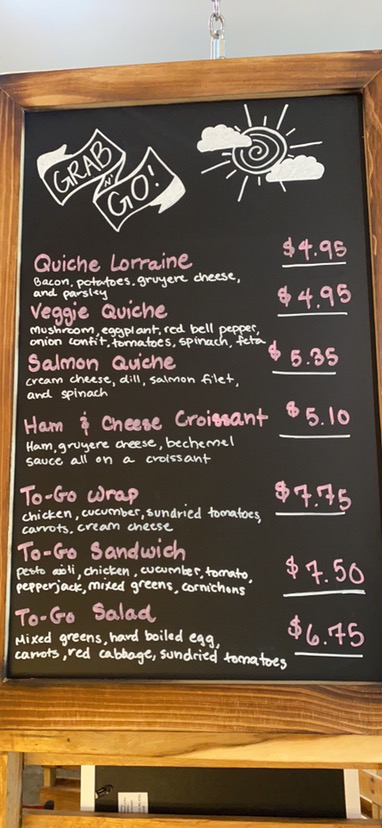 GRAB
N'
GO!
Quiche Lorraine $4.95
Bacon, potatoes, gruyere cheese,
and parsley
Veggie Quiche $4.95
Mushroom, eggplant, red bell pepper,
onion confit, tomatoes, spinach, feta
Salmon Quiche $5.35
cream cheese, dill, salmon filet,
and spinach
Ham & Cheese Croissant $5.10
Ham, gruyere cheese, bechemel
sauce all on a croissant
To-Go Wrap $7.75
chicken, cucumber, sundried tomatoes,
carrots, cream cheese
To-Go Sandwich $7.50
Pesto aioli, chicken, cucumber, tomato,
pepperjack, mixed greens, cornichons
To-Go Salad $6.75
Mixed greens, hard boiled egg,
carrots, red cabbage, sundried tomatoes